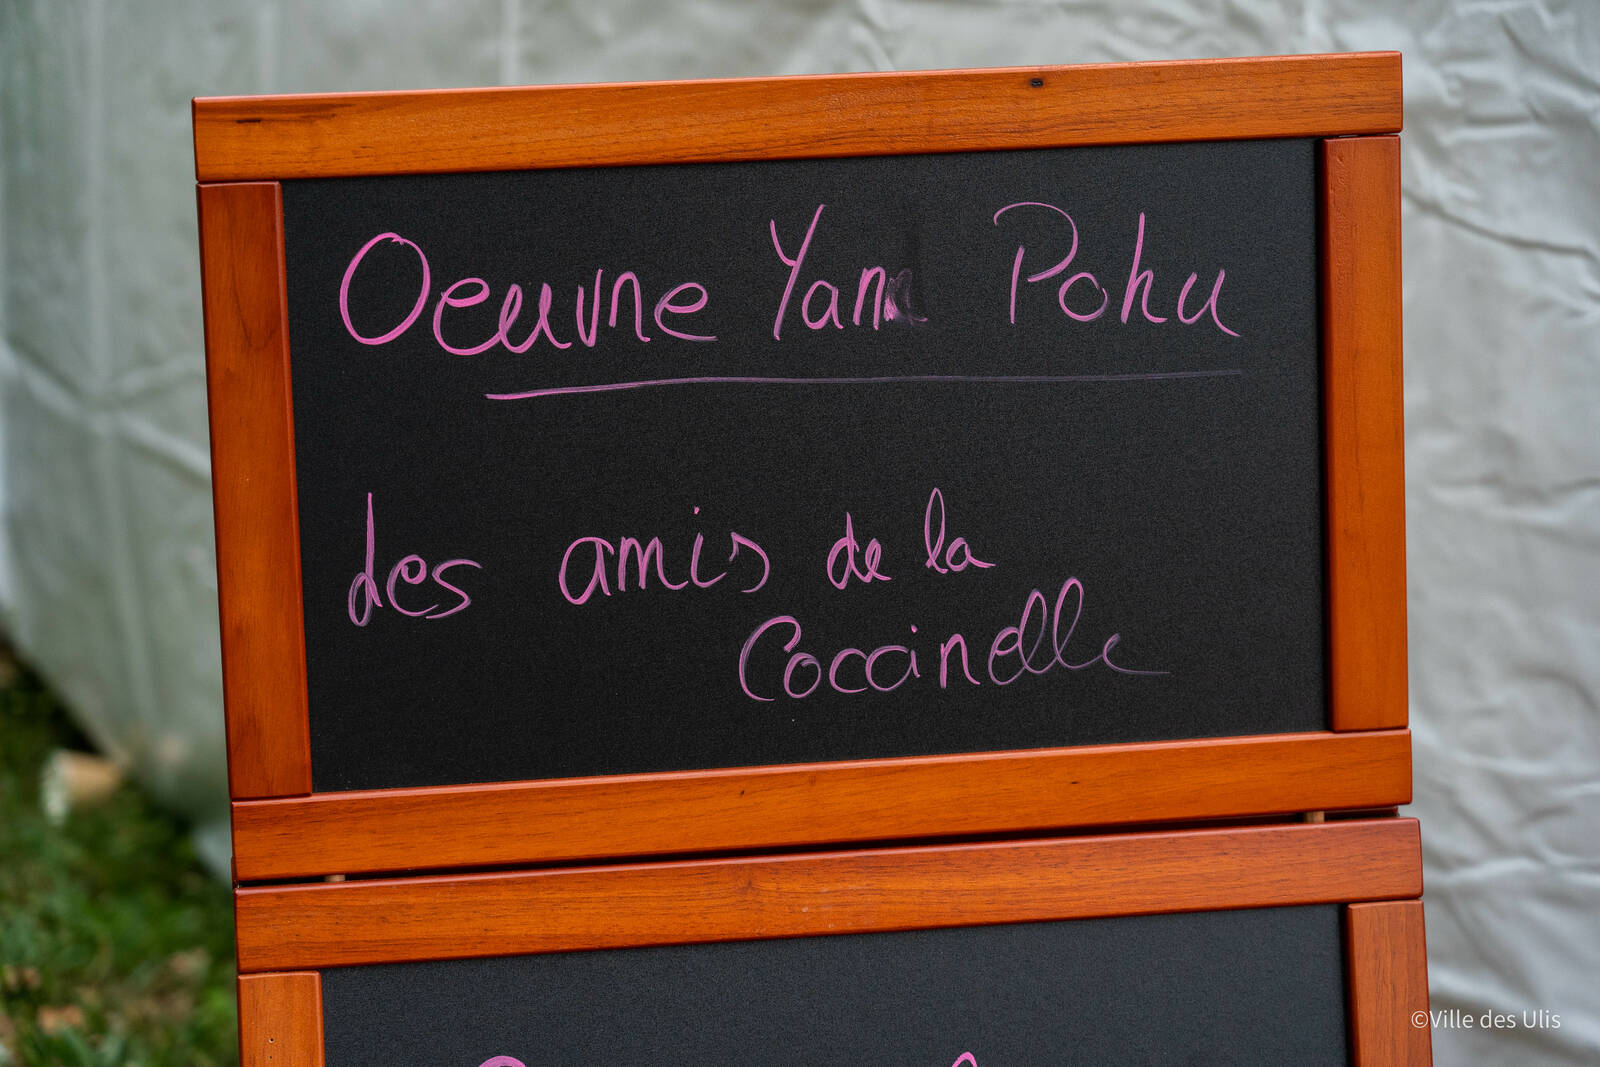 Oeuvre Yan Pohu
des amis de la
Coccinelle
©Ville des Ulis